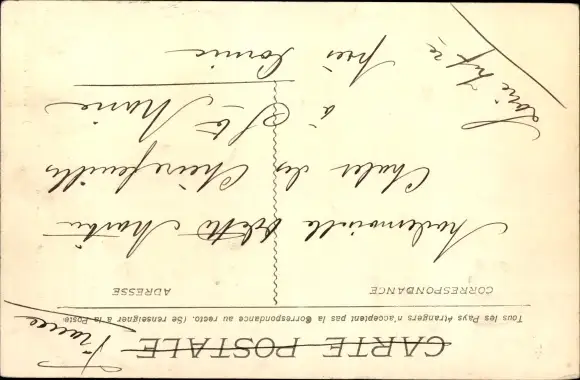 CARTE POSTALE
France
Tous les Pays étrangers n'acceptent pas la Correspondance au recto. (Se renseigner à la Poste.
CORRESPONDANCE
ADRESSE
Mademoiselle Martin
Chalet des Chèvrefeuilles
à Ste Marie
près Pornic
Loire Infre